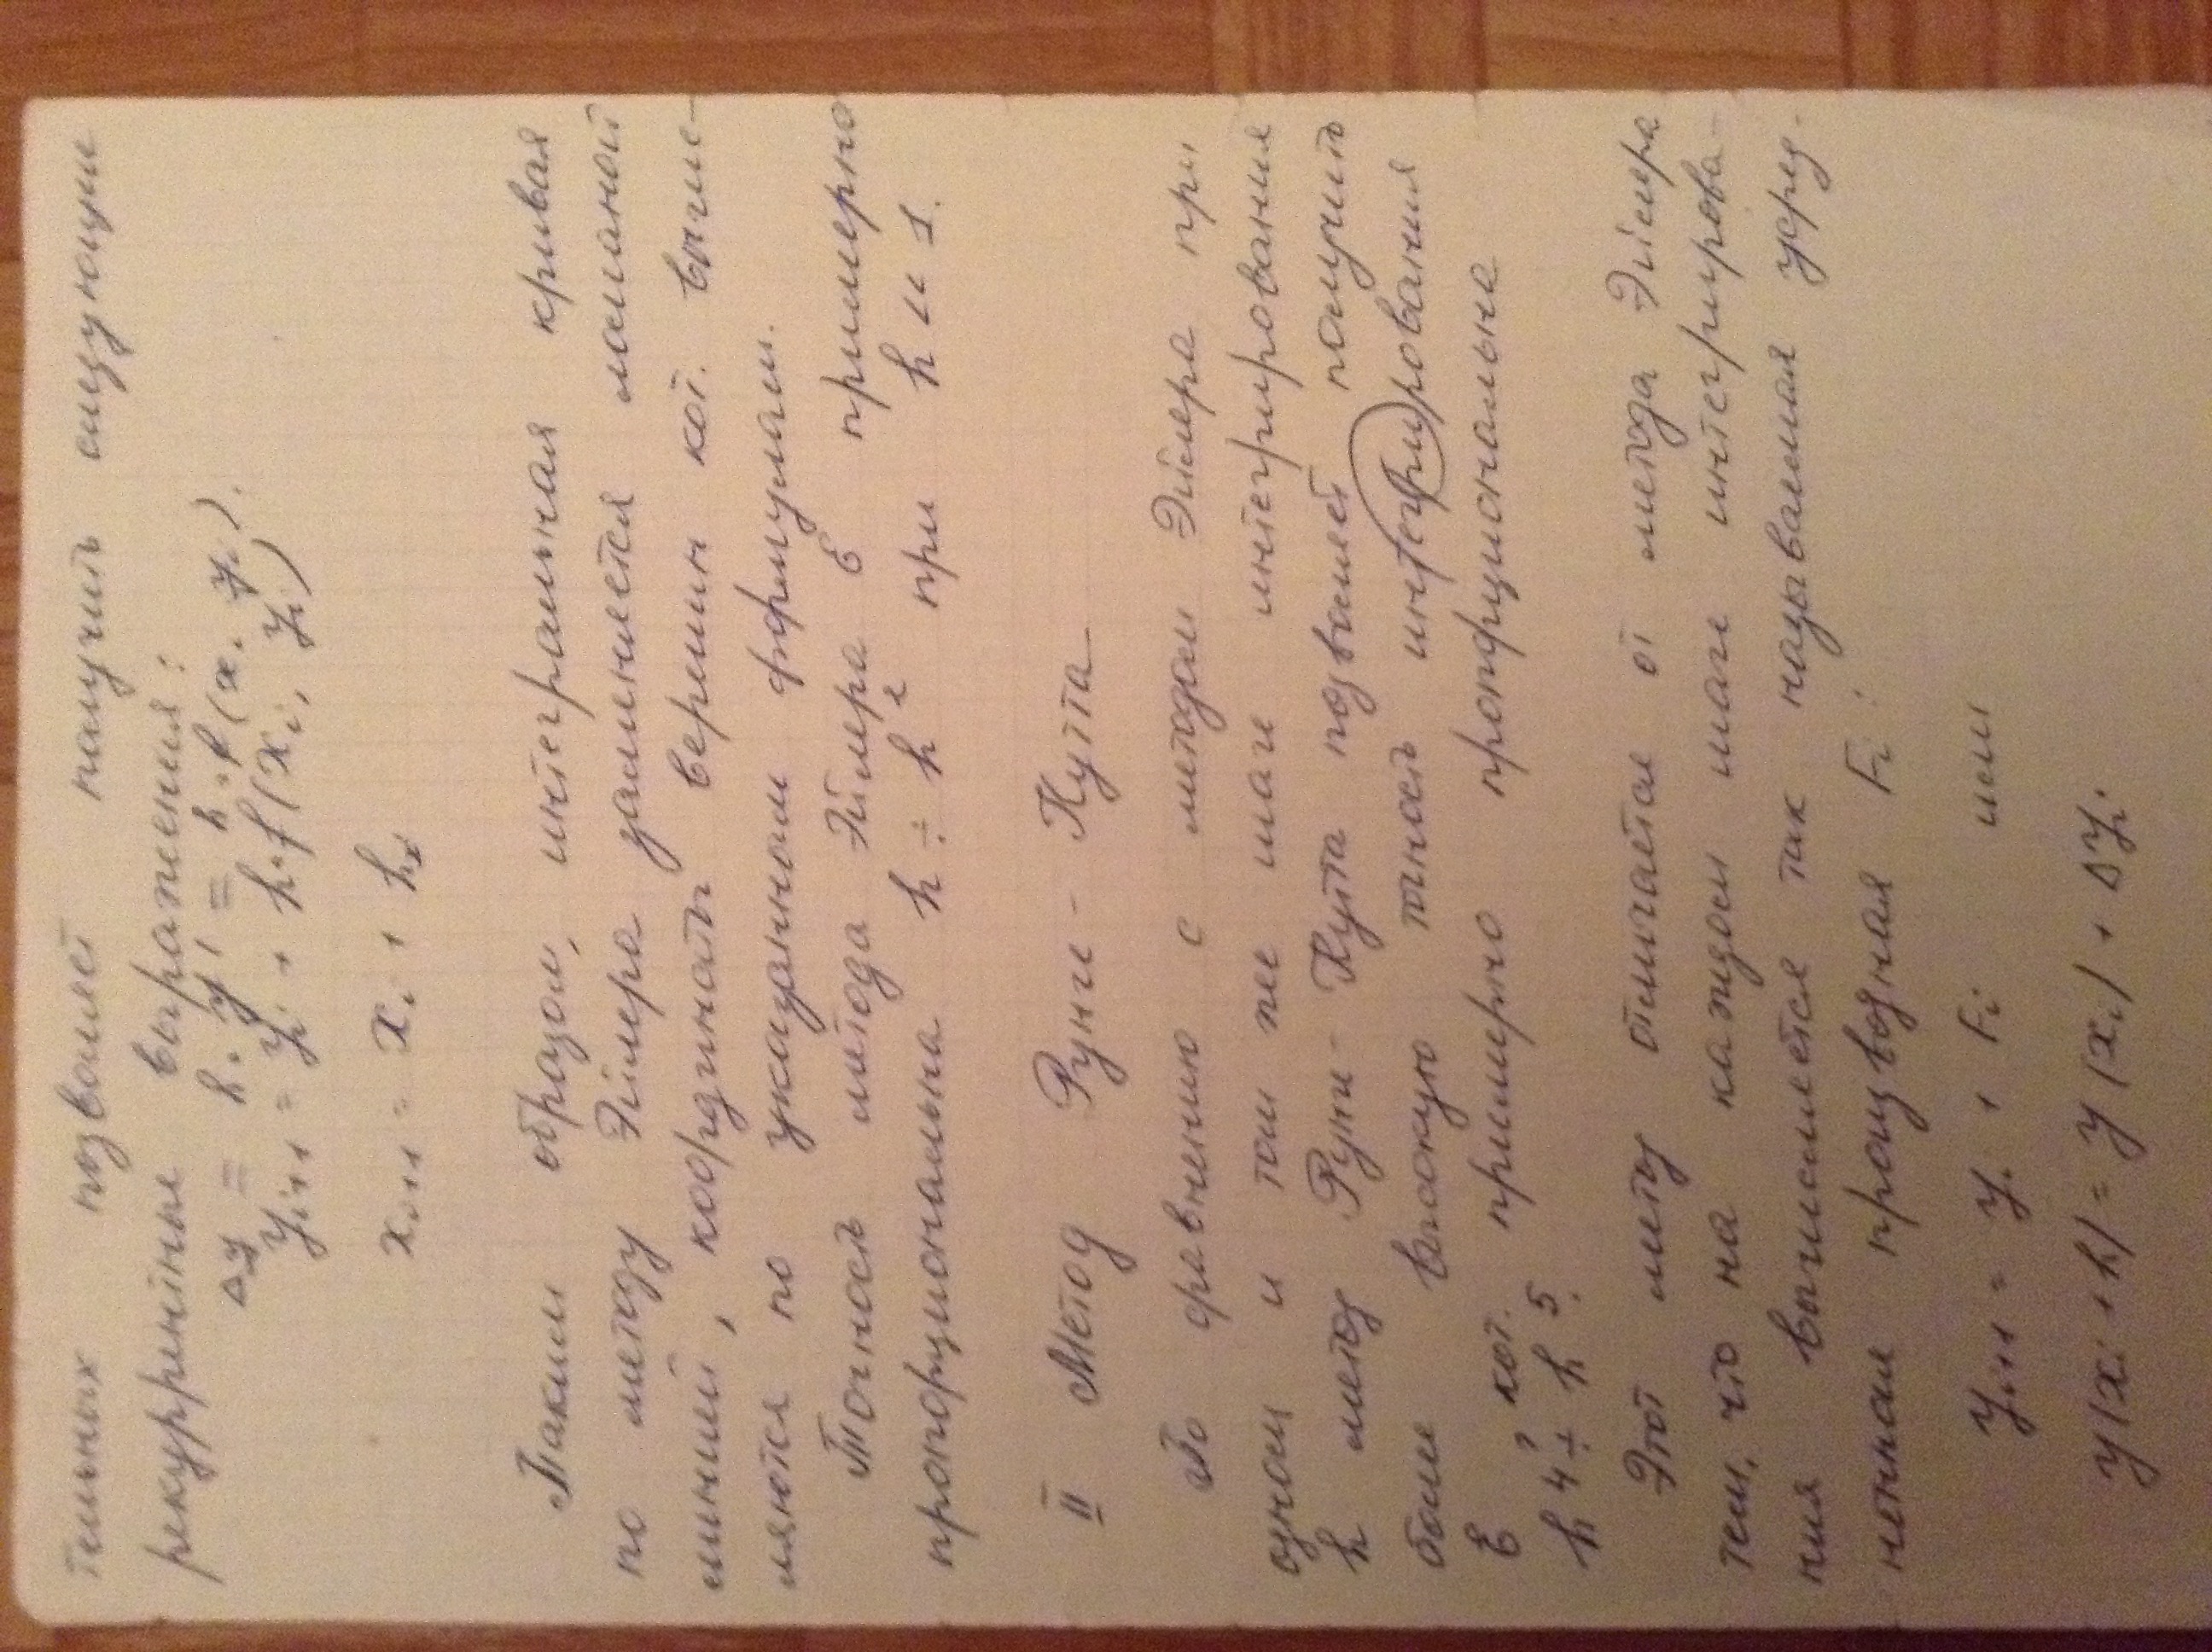 тельных позволяет получить следующие
рекуррентные выражения:
Δy = h · y' = h · f(xi yi).
yi+1 = yi + h·f(xi, yi)
xi+1 = xi + hx
Таким образом, интегральная кривая
по методу Эйлера заменяется ломаной
линией, координаты вершин кот. вычис-
ляются по указанным формулам.
Точность метода Эйлера Ɛ примерно
пропорциональна h ÷ h² при h << 1.
II Метод Рунге - Кутта
По сравнению с методом Эйлера при
одном и том же шаге интегрирования
h метод Рунге - Кутта позволяет получить
более высокую точность интегрирования
Ɛ, кот. примерно пропорциональна
h⁴ ÷ h⁵.
Этот метод отличается от метода Эйлера
тем, что на каждом шаге интегрирова-
ния вычисляется так называемая усред-
ненная производная Fi:
yi+1 = yi + Fi или
y(xi + h) = y(xi) + Δyi